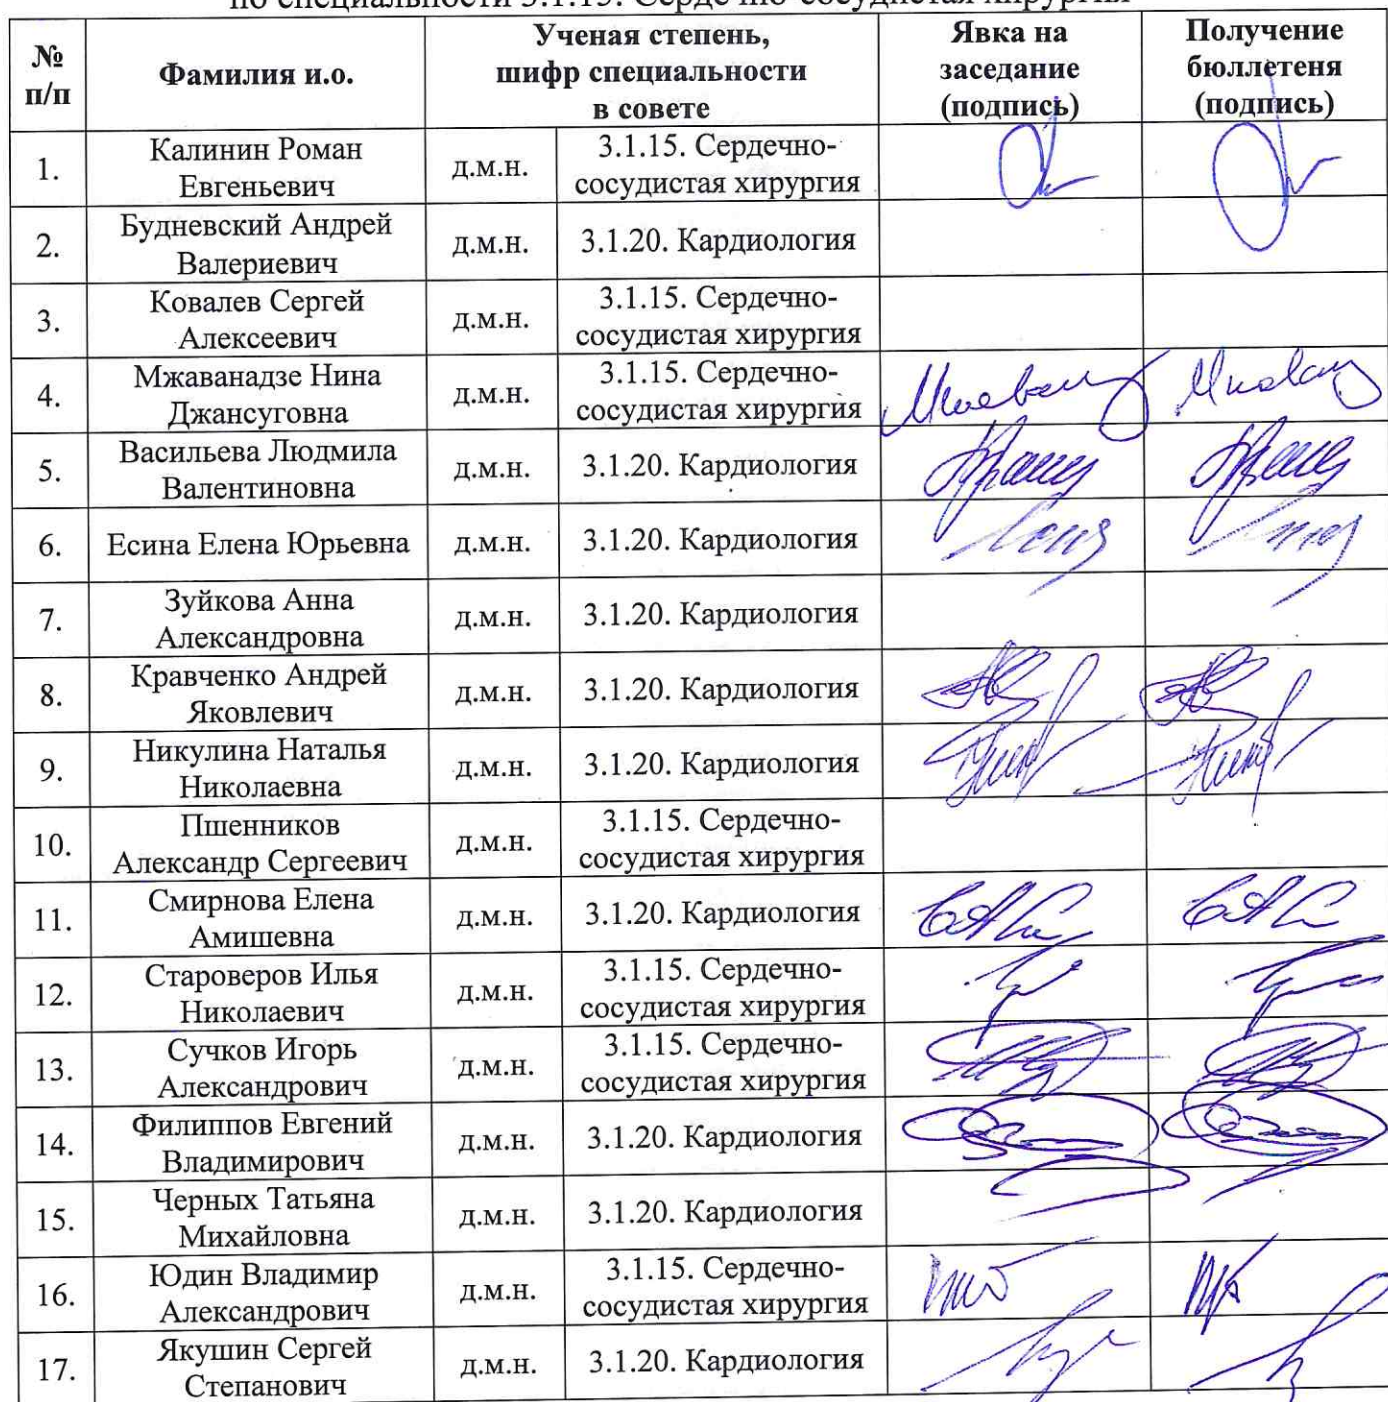 по специальности 3.1.15. Сердечно-сосудистая хирургия
№ п/п
Фамилия и.о.
Ученая степень,
шифр специальности
в совете
Явка на
заседание
(подпись)
Получение
бюллетеня
(подпись)
1.
Калинин Роман
Евгеньевич
д.м.н.
3.1.15. Сердечно-
сосудистая хирургия
2.
Будневский Андрей
Валериевич
д.м.н.
3.1.20. Кардиология
3.
Ковалев Сергей
Алексеевич
д.м.н.
3.1.15. Сердечно-
сосудистая хирургия
4.
Мжаванадзе Нина
Джансуговна
д.м.н.
3.1.15. Сердечно-
сосудистая хирургия
5.
Васильева Людмила
Валентиновна
д.м.н.
3.1.20. Кардиология
6.
Есина Елена Юрьевна
д.м.н.
3.1.20. Кардиология
7.
Зуйкова Анна
Александровна
д.м.н.
3.1.20. Кардиология
8.
Кравченко Андрей
Яковлевич
д.м.н.
3.1.20. Кардиология
9.
Никулина Наталья
Николаевна
д.м.н.
3.1.20. Кардиология
10.
Пшенников
Александр Сергеевич
д.м.н.
3.1.15. Сердечно-
сосудистая хирургия
11.
Смирнова Елена
Амишевна
д.м.н.
3.1.20. Кардиология
12.
Староверов Илья
Николаевич
д.м.н.
3.1.15. Сердечно-
сосудистая хирургия
13.
Сучков Игорь
Александрович
д.м.н.
3.1.15. Сердечно-
сосудистая хирургия
14.
Филиппов Евгений
Владимирович
д.м.н.
3.1.20. Кардиология
15.
Черных Татьяна
Михайловна
д.м.н.
3.1.20. Кардиология
16.
Юдин Владимир
Александрович
д.м.н.
3.1.15. Сердечно-
сосудистая хирургия
17.
Якушин Сергей
Степанович
д.м.н.
3.1.20. Кардиология